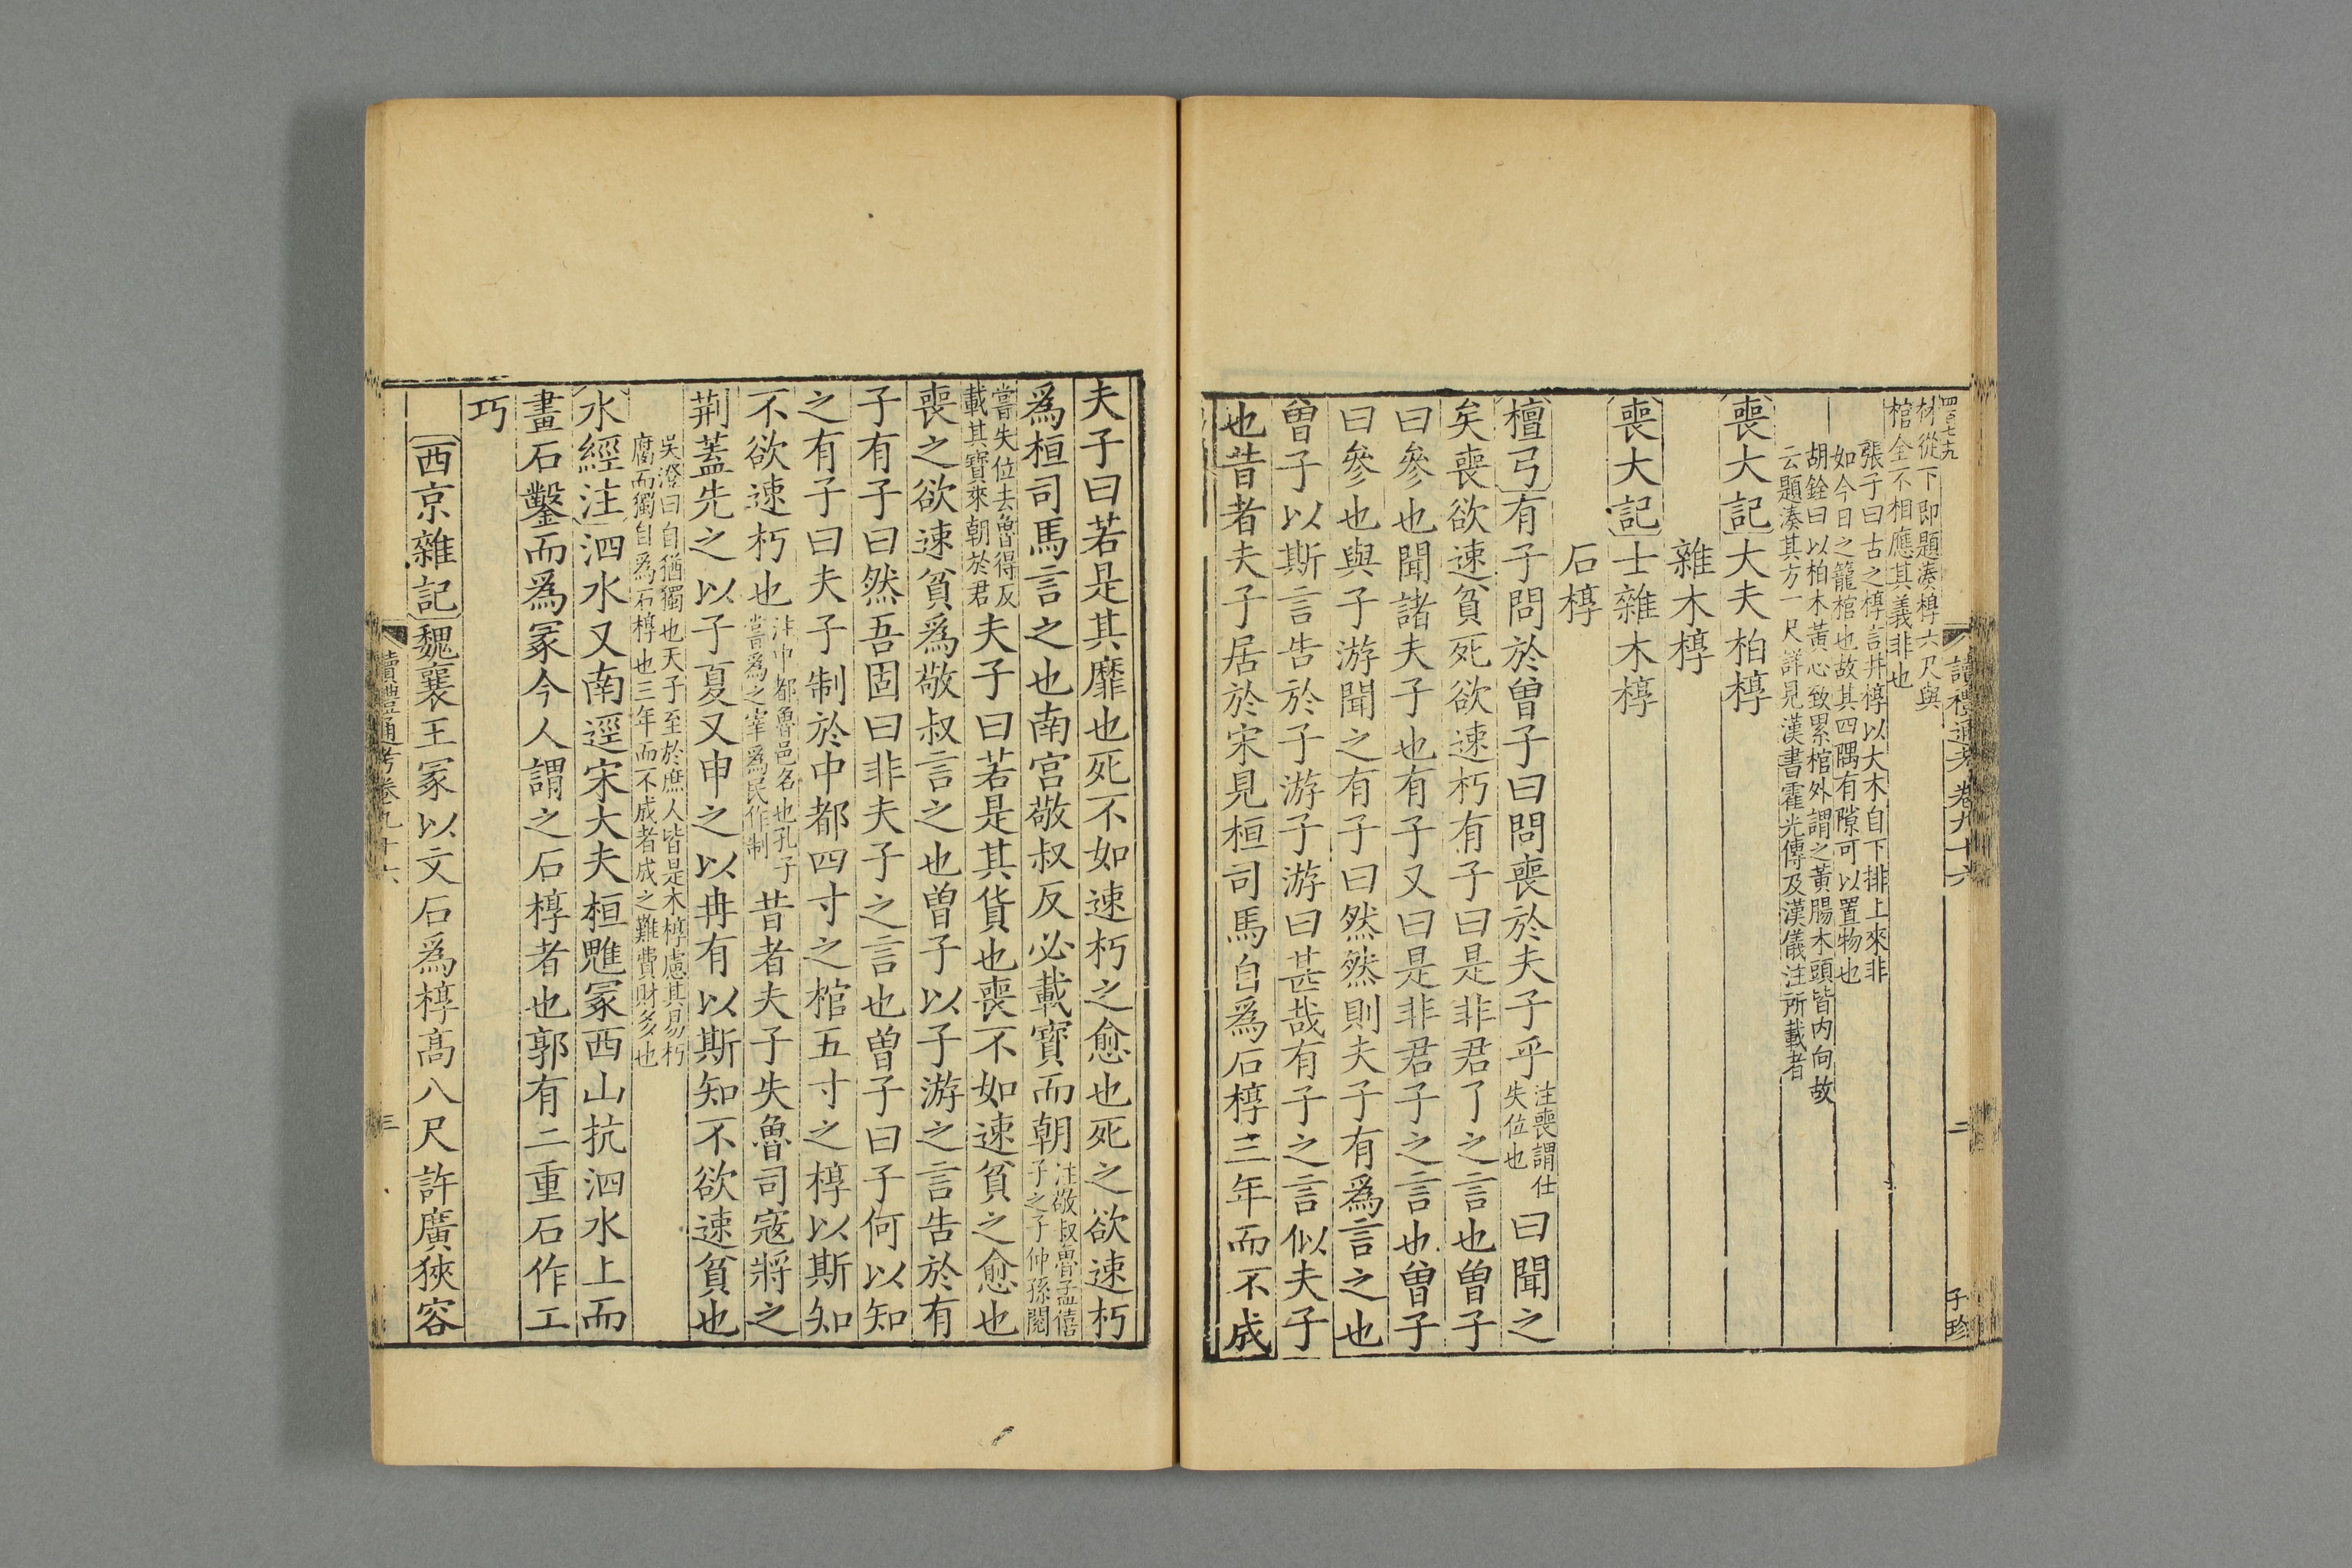 四百七九
讀禮通考卷九十六
二
子珍
材從下即題湊槨六尺與
棺全不相應其義非也
張子曰古之槨言井槨以大木自下排上來非
如今日之籠棺也故其四隅有隙可以置物也
胡銓曰以柏木黃心致累棺外謂之黃腸木頭皆內向故
云題湊其方一尺詳見漢書霍光傳及漢儀注所載者
喪大記大夫柏槨
雜木槨
喪大記士雜木槨
石槨
檀弓有子問於曾子曰問喪於夫子乎注喪謂仕失位也曰聞之
矣喪欲速貧死欲速朽有子曰是非君子之言也曾子
曰參也聞諸夫子也有子又曰是非君子之言也曾子
曰參也與子游聞之有子曰然然則夫子有爲言之也
曾子以斯言告於子游子游曰甚哉有子之言似夫子
也昔者夫子居於宋見桓司馬自爲石槨三年而不成
夫子曰若是其靡也死不如速朽之愈也死之欲速朽
爲桓司馬言之也南宮敬叔反必載寶而朝注敬叔魯孟僖子之子仲孫閱
嘗失位去魯得反載其寶來朝於君夫子曰若是其貨也喪不如速貧之愈也
喪之欲速貧爲敬叔言之也曾子以子游之言告於有
子有子曰然吾固曰非夫子之言也曾子曰子何以知
之有子曰夫子制於中都四寸之棺五寸之槨以斯知
不欲速朽也注中都魯邑名也孔子嘗爲之宰爲民作制昔者夫子失魯司寇將之
荆蓋先之以子夏又申之以冉有以斯知不欲速貧也
吳澄曰自猶獨也天子至於庶人皆是木槨慮其易朽
腐而獨自爲石槨也三年而不成者成之難費財多也
水經注泗水又南逕宋大夫桓魋冢西山抗泗水上而
畫石鑿而爲冢今人謂之石槨者也郭有二重石作工
巧
西京雜記魏襄王冢以文石爲槨高八尺許廣狹容
讀禮通考卷九十六
三